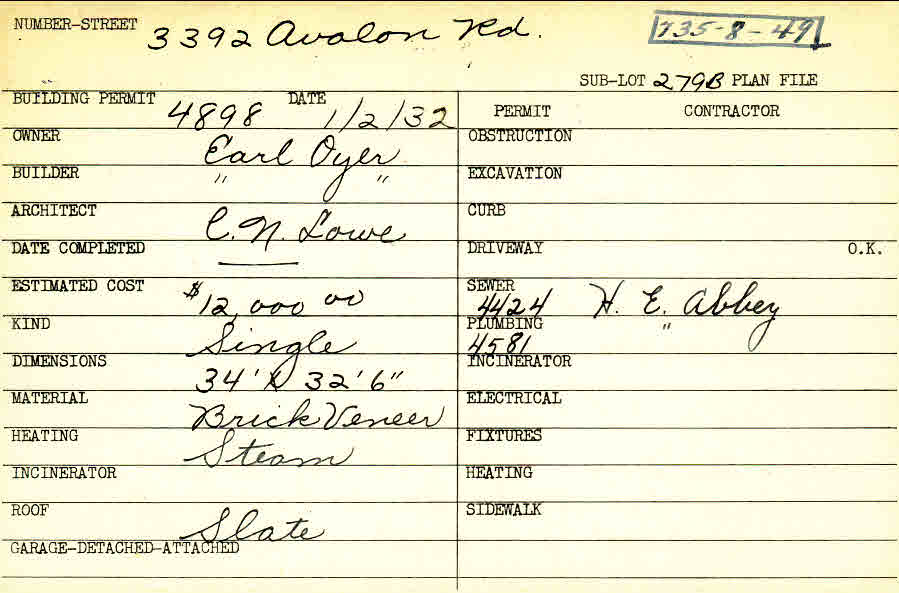 NUMBER-STREET 3392 Avalon Rd. 735-8-49
SUB-LOT 279B PLAN FILE
BUILDING PERMIT 4898 DATE 1/2/32
PERMIT CONTRACTOR
OWNER Earl Oyler
OBSTRUCTION
BUILDER " "
EXCAVATION
ARCHITECT C. N. Lowe
CURB
DATE COMPLETED ——
DRIVEWAY O.K.
ESTIMATED COST $12,000 00
SEWER 4424 H. E. Abbey
KIND Single
PLUMBING 4581 "
DIMENSIONS 34' X 32'6"
INCINERATOR
MATERIAL Brick Veneer
ELECTRICAL
HEATING Steam
FIXTURES
INCINERATOR
HEATING
ROOF Slate
SIDEWALK
GARAGE-DETACHED-ATTACHED